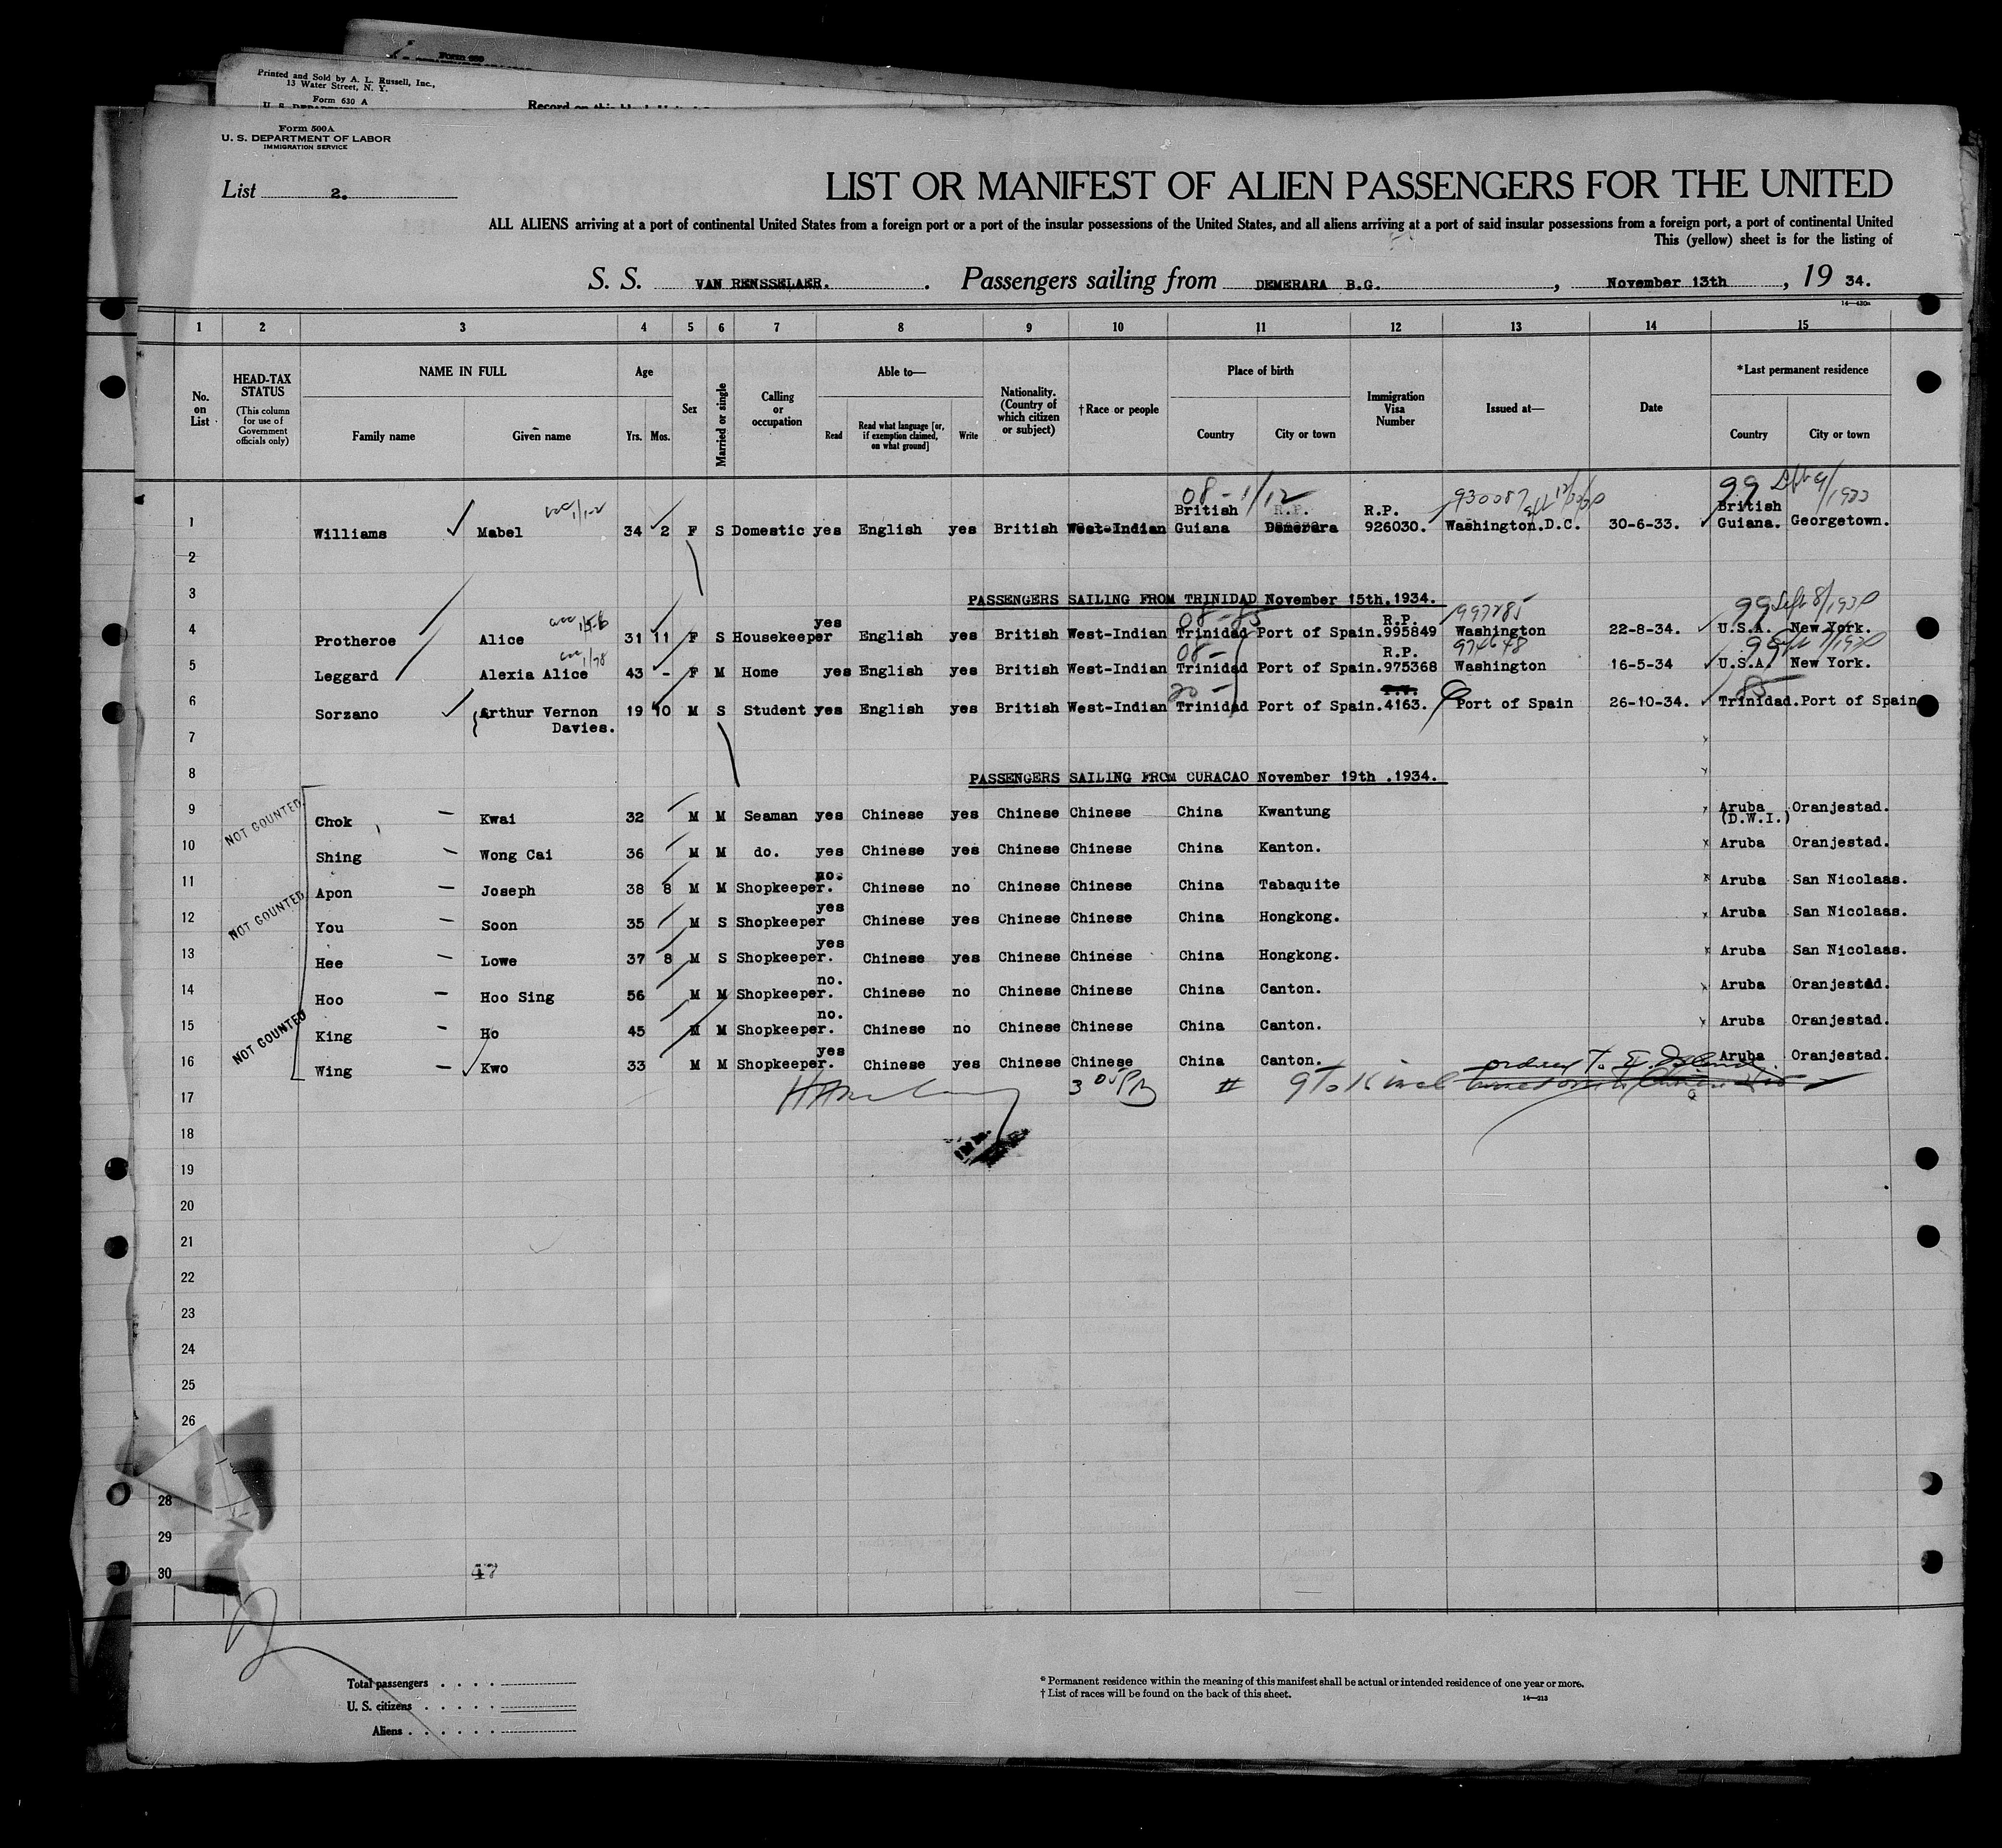 Form 630
Printed and Sold by A. L. Russell, Inc.,
13 Water Street, N. Y.
Form 630 A
Form 500A
U. S. DEPARTMENT OF LABOR
IMMIGRATION SERVICE
List 2.
LIST OR MANIFEST OF ALIEN PASSENGERS FOR THE UNITED
ALL ALIENS arriving at a port of continental United States from a foreign port or a port of the insular possessions of the United States, and all aliens arriving at a port of said insular possessions from a foreign port, a port of continental United
This (yellow) sheet is for the listing of
S. S. VAN RENSSELAER. Passengers sailing from DEMERARA B.G. , November 13th , 19 34.
14—430a
1 2 3 4 5 6 7 8 9 10 11 12 13 14 15
No. on List
HEAD-TAX STATUS (This column for use of Government officials only)
NAME IN FULL
Family name Given name
Age
Yrs. Mos.
Sex
Married or single
Calling or occupation
Able to—
Read Read what language [or, if exemption claimed, on what ground] Write
Nationality. (Country of which citizen or subject)
†Race or people
Place of birth
Country City or town
Immigration Visa Number
Issued at—
Date
*Last permanent residence
Country City or town
08-1/12 930087 99
1 Williams Mabel 34 2 F S Domestic yes English yes British West-Indian British Guiana Demerara R.P. 926030. Washington.D.C. 30-6-33. British Guiana. Georgetown.
2
3 PASSENGERS SAILING FROM TRINIDAD November 15th.1934.
08-85 997285 99 Sept 8/1930
4 Protheroe Alice 31 11 F S Housekeeper yes English yes British West-Indian Trinidad Port of Spain. R.P. 995849 Washington 22-8-34. U.S.A. New York.
08- 974648
5 Leggard Alexia Alice 43 - F M Home yes English yes British West-Indian Trinidad Port of Spain. R.P. 975368 Washington 16-5-34 U.S.A. New York.
20- 85
6 Sorzano Arthur Vernon Davies. 19 10 M S Student yes English yes British West-Indian Trinidad Port of Spain. 4163. Port of Spain 26-10-34. Trinidad. Port of Spain
7
8 PASSENGERS SAILING FROM CURACAO November 19th .1934.
NOT COUNTED
9 Chok - Kwai 32 M M Seaman yes Chinese yes Chinese Chinese China Kwantung x Aruba (D.W.I.) Oranjestad.
10 Shing - Wong Cai 36 M M do. yes Chinese yes Chinese Chinese China Kanton. x Aruba Oranjestad.
11 Apon - Joseph 38 8 M M Shopkeeper. no. Chinese no Chinese Chinese China Tabaquite x Aruba San Nicolaas.
NOT COUNTED
12 You - Soon 35 M S Shopkeeper yes Chinese yes Chinese Chinese China Hongkong. x Aruba San Nicolaas.
13 Hee - Lowe 37 8 M S Shopkeeper. yes Chinese yes Chinese Chinese China Hongkong. x Aruba San Nicolaas.
14 Hoo - Hoo Sing 56 M M Shopkeeper. no. Chinese no Chinese Chinese China Canton. x Aruba Oranjestad.
NOT COUNTED
15 King - Ho 45 M M Shopkeeper. no. Chinese no Chinese Chinese China Canton. x Aruba Oranjestad.
16 Wing - Kwo 33 M M Shopkeeper. yes Chinese yes Chinese Chinese China Canton. Aruba Oranjestad.
ordered
17 3 05 PM # 9 To 16 incl
18
19
20
21
22
23
24
25
26
28
29
30 47
Total passengers . . . .
U. S. citizens . . . . .
Aliens . . . . . .
* Permanent residence within the meaning of this manifest shall be actual or intended residence of one year or more.
† List of races will be found on the back of this sheet.
14—213